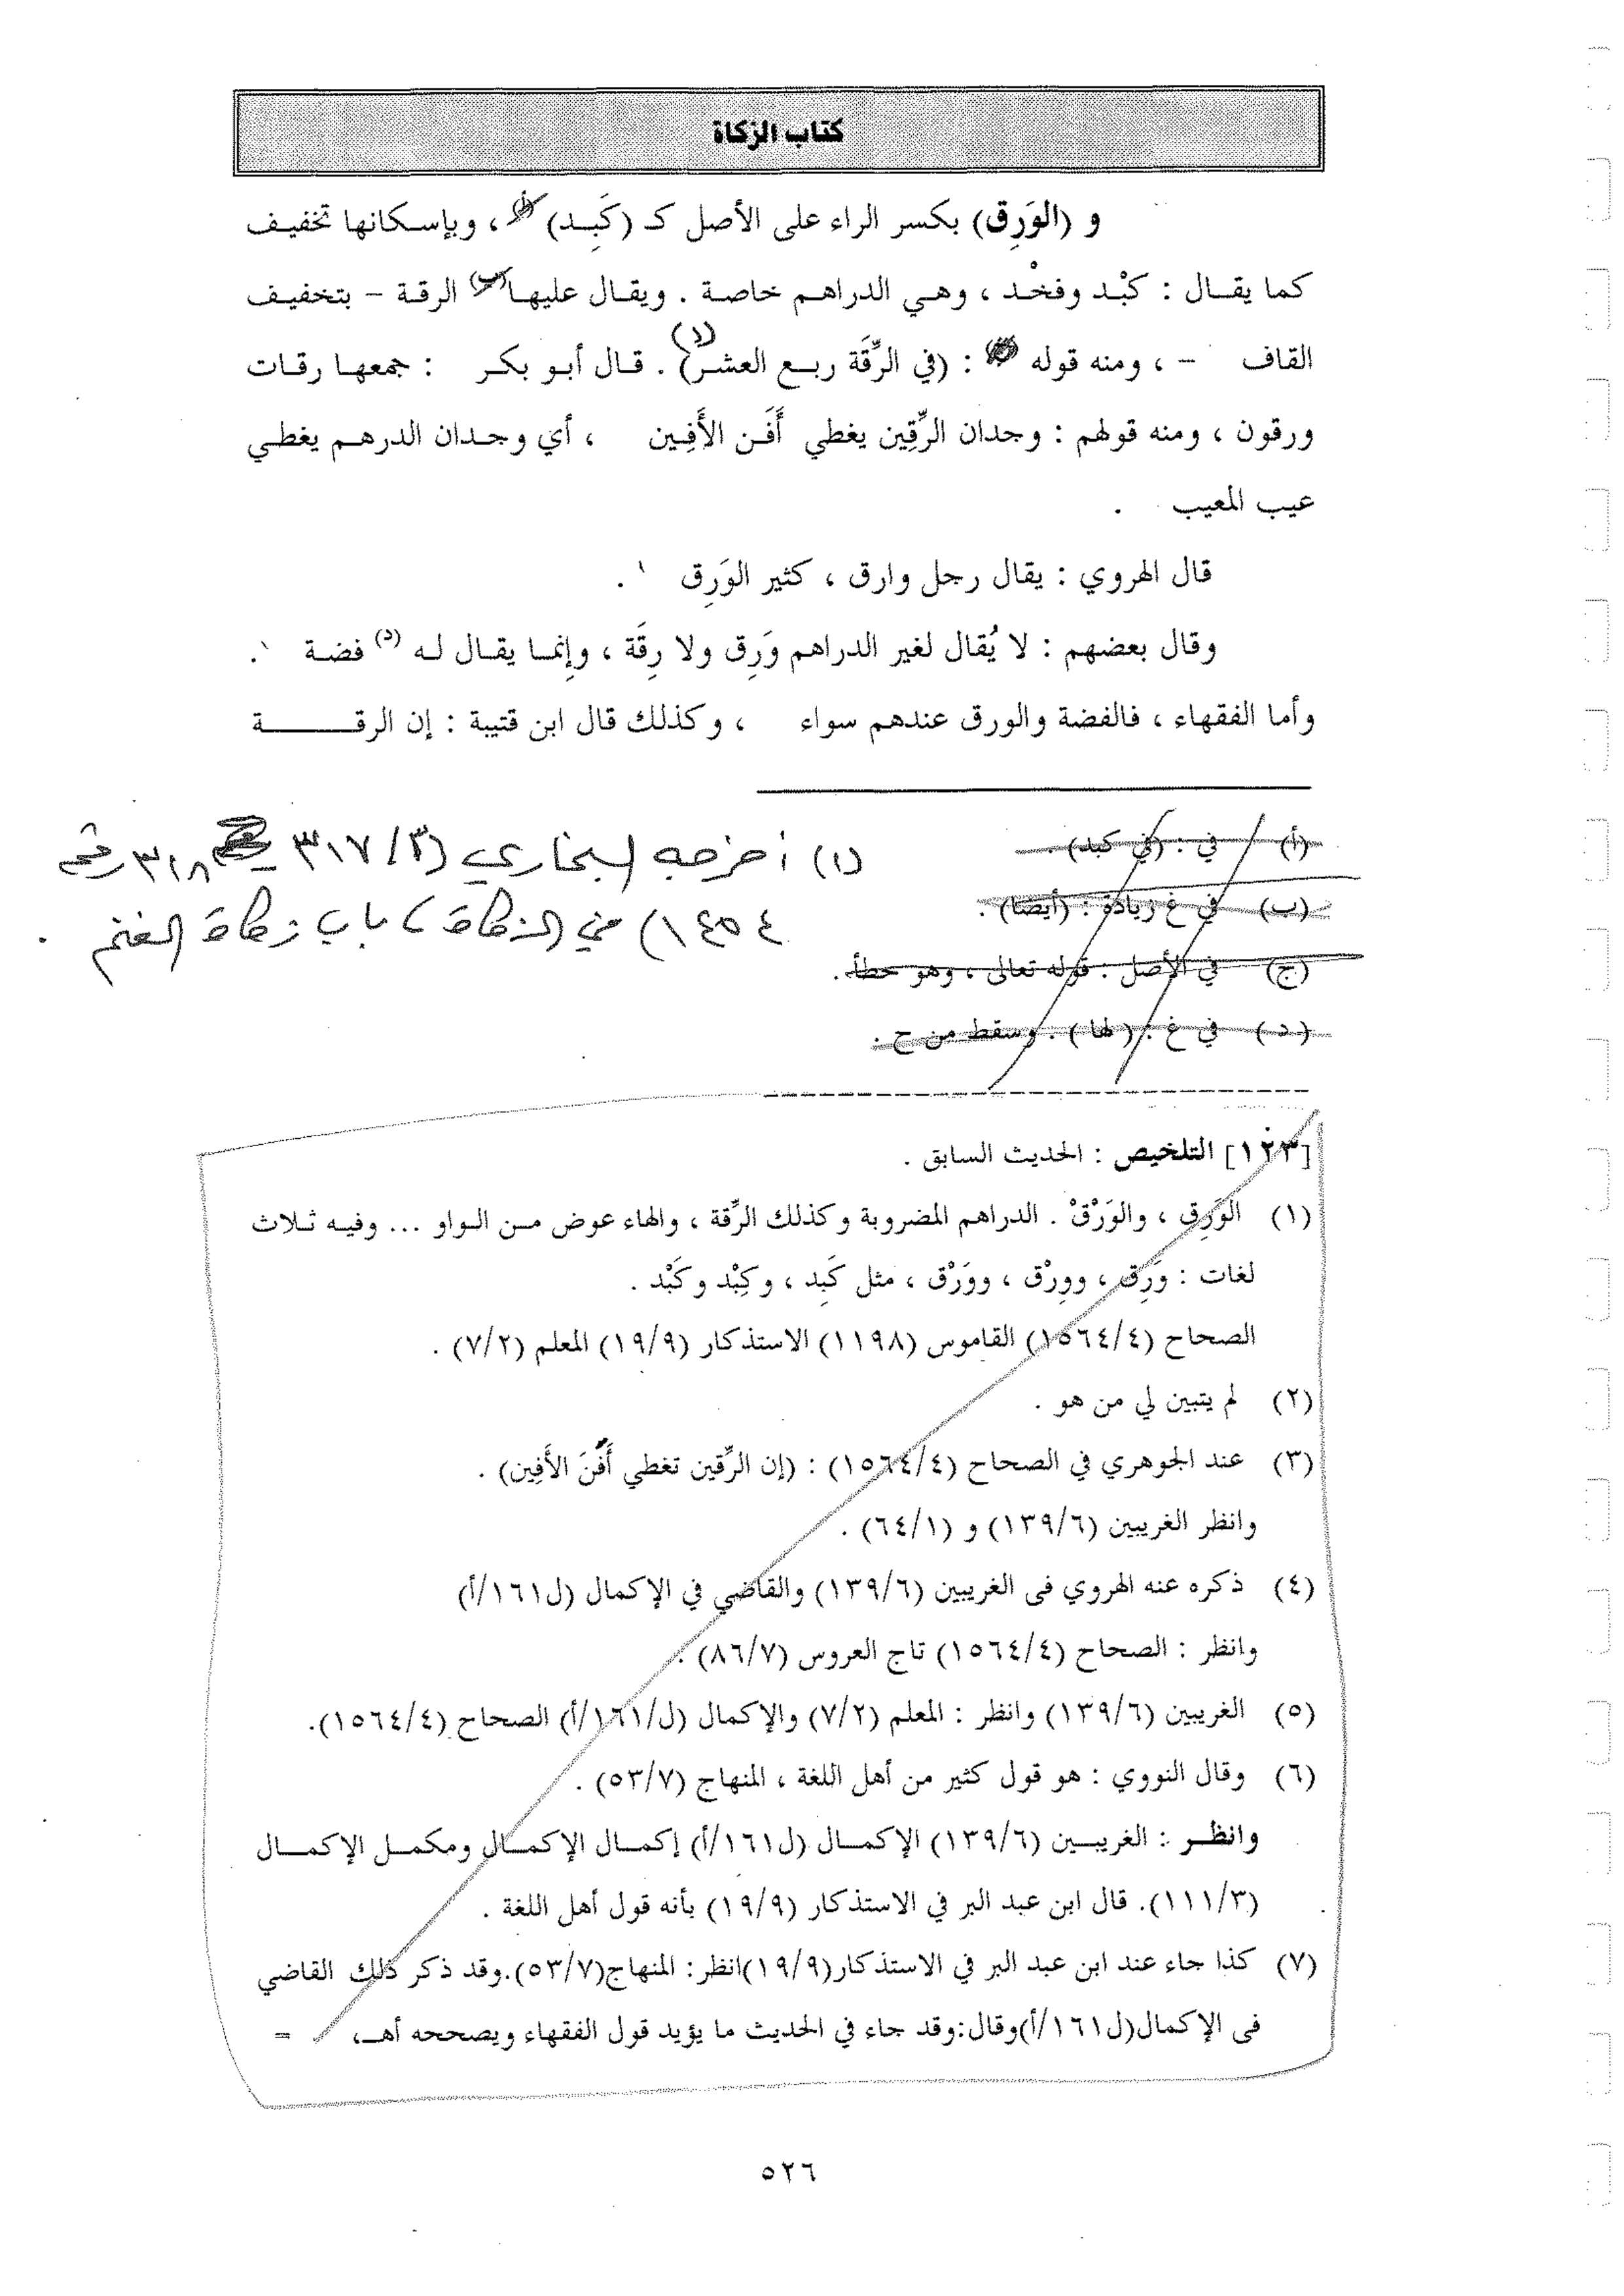 كتاب الزكاة
و (الوَرِق) بكسر الراء على الأصل كـ (كَبِد) ، وبإسكانها تخفيف
كما يقال : كبْد وفخْد ، وهي الدراهم خاصة . ويقال عليها (ب) الرقة – بتخفيف
القاف – ، ومنه قوله : (في الرِّقَة ربع العشر) (١) . قال أبو بكر : جمعها رقات
ورقون ، ومنه قولهم : وجدان الرِّقِين يغطي أَفَن الأَفِين ، أي وجدان الدرهم يغطي
عيب المعيب .
قال الهروي : يقال رجل وارق ، كثير الوَرِق .
وقال بعضهم : لا يُقال لغير الدراهم وَرِق ولا رِقَة ، وإنما يقال له (د) فضة .
وأما الفقهاء ، فالفضة والورق عندهم سواء ، وكذلك قال ابن قتيبة : إن الرقة
(أ) في : (في كبد) .
(ب) في غ زيادة : (أيضا) .
(ج) في الأصل : قوله تعالى ، وهو خطأ .
(د) في غ : (لها) . وسقط من ح .
(١) أخرجه البخاري (٣/ ٣١٧ ٣١٨ رقم
١٤٥٤) في الزكاة ، باب زكاة الغنم .
[١٢٣] التلخيص : الحديث السابق .
(١) الوَرِق ، والوَرْقْ . الدراهم المضروبة وكذلك الرِّقة ، والهاء عوض من الواو ... وفيه ثلاث
لغات : وَرِق ، ووِرْق ، ووَرْق ، مثل كَبِد ، وكِبْد وكَبْد .
الصحاح (١٥٦٤/٤) القاموس (١١٩٨) الاستذكار (١٩/٩) المعلم (٧/٢) .
(٢) لم يتبين لي من هو .
(٣) عند الجوهري في الصحاح (١٥٦٤/٤) : (إن الرِّقين تغطي أَفْنَ الأَفِين) .
وانظر الغريبين (١٣٩/٦) و (٦٤/١) .
(٤) ذكره عنه الهروي فى الغريبين (١٣٩/٦) والقاضي في الإكمال (ل١٦١/أ)
وانظر : الصحاح (١٥٦٤/٤) تاج العروس (٨٦/٧) .
(٥) الغريبين (١٣٩/٦) وانظر : المعلم (٧/٢) والإكمال (ل/١٦١/أ) الصحاح (١٥٦٤/٤).
(٦) وقال النووي : هو قول كثير من أهل اللغة ، المنهاج (٥٣/٧) .
وانظر : الغريبين (١٣٩/٦) الإكمال (ل١٦١/أ) إكمال الإكمال ومكمل الإكمال
(١١١/٣). قال ابن عبد البر في الاستذكار (١٩/٩) بأنه قول أهل اللغة .
(٧) كذا جاء عند ابن عبد البر في الاستذكار(١٩/٩)انظر: المنهاج(٥٣/٧).وقد ذكر ذلك القاضي
فى الإكمال(ل١٦١/أ)وقال:وقد جاء في الحديث ما يؤيد قول الفقهاء ويصححه أهـ، =
٥٢٦